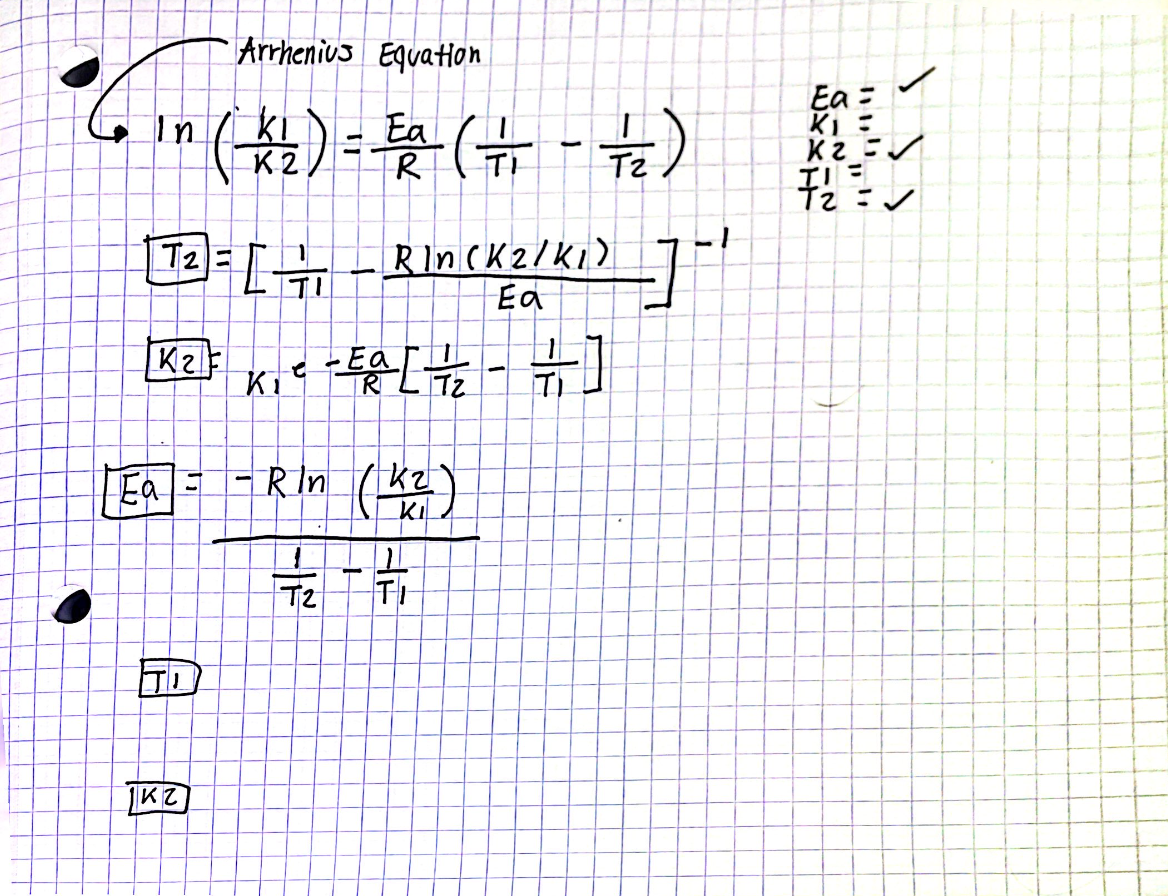 Arrhenius Equation
ln (K1/K2) = Ea/R (1/T1 - 1/T2)
Ea = ✓
K1 =
K2 = ✓
T1 =
T2 = ✓
T2 = [1/T1 - R ln (K2/K1)/Ea]^-1
K2 = K1 e -Ea/R [1/T2 - 1/T1]
Ea = - R ln (K2/K1)
1/T2 - 1/T1
T1
K2